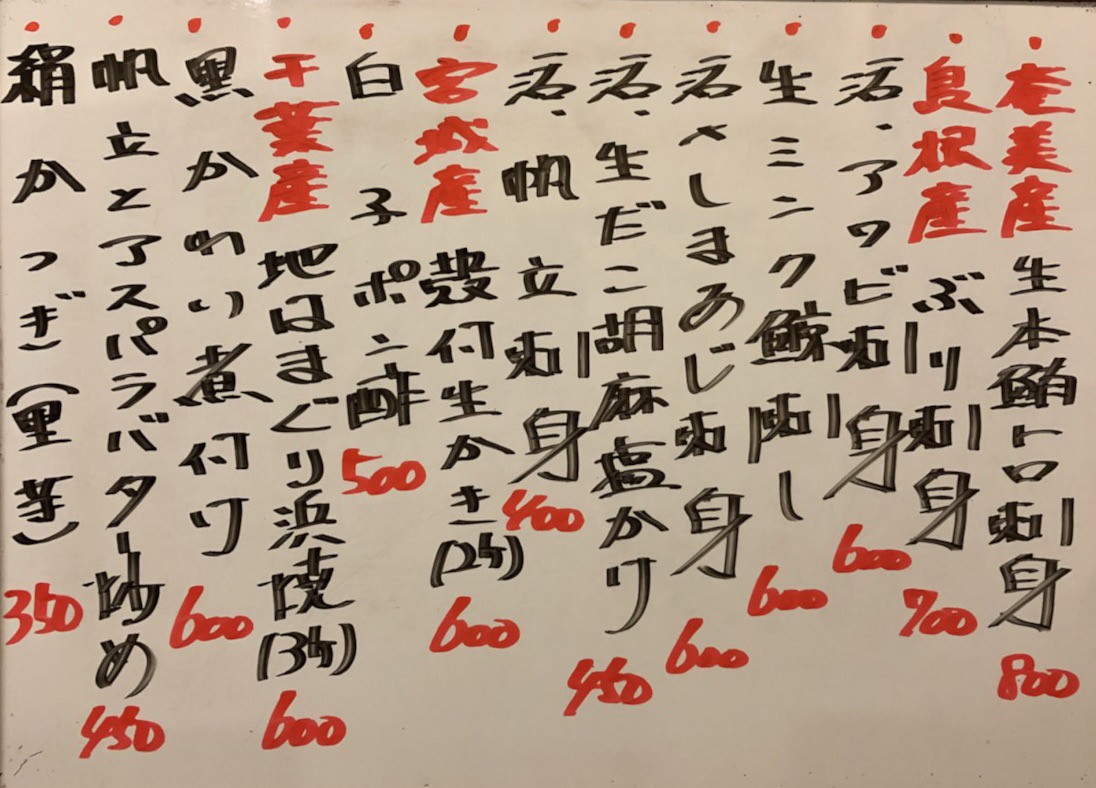 奄美産 生本鮪トロ刺身 800
島根産 ぶり刺身 700
活、アワビ刺身 600
生ミンク鯨刺し 600
活〆しまあじ刺身 600
活、生だこ胡麻塩かり 450
活、帆立刺身 400
宮城産 殻付生かき(2ケ) 600
白子ポン酢 500
千葉産 地はまぐり浜焼(3ケ) 600
黒かわり煮付け 600
帆立とアスパラバター炒め 450
絹かつぎ(里芋) 350